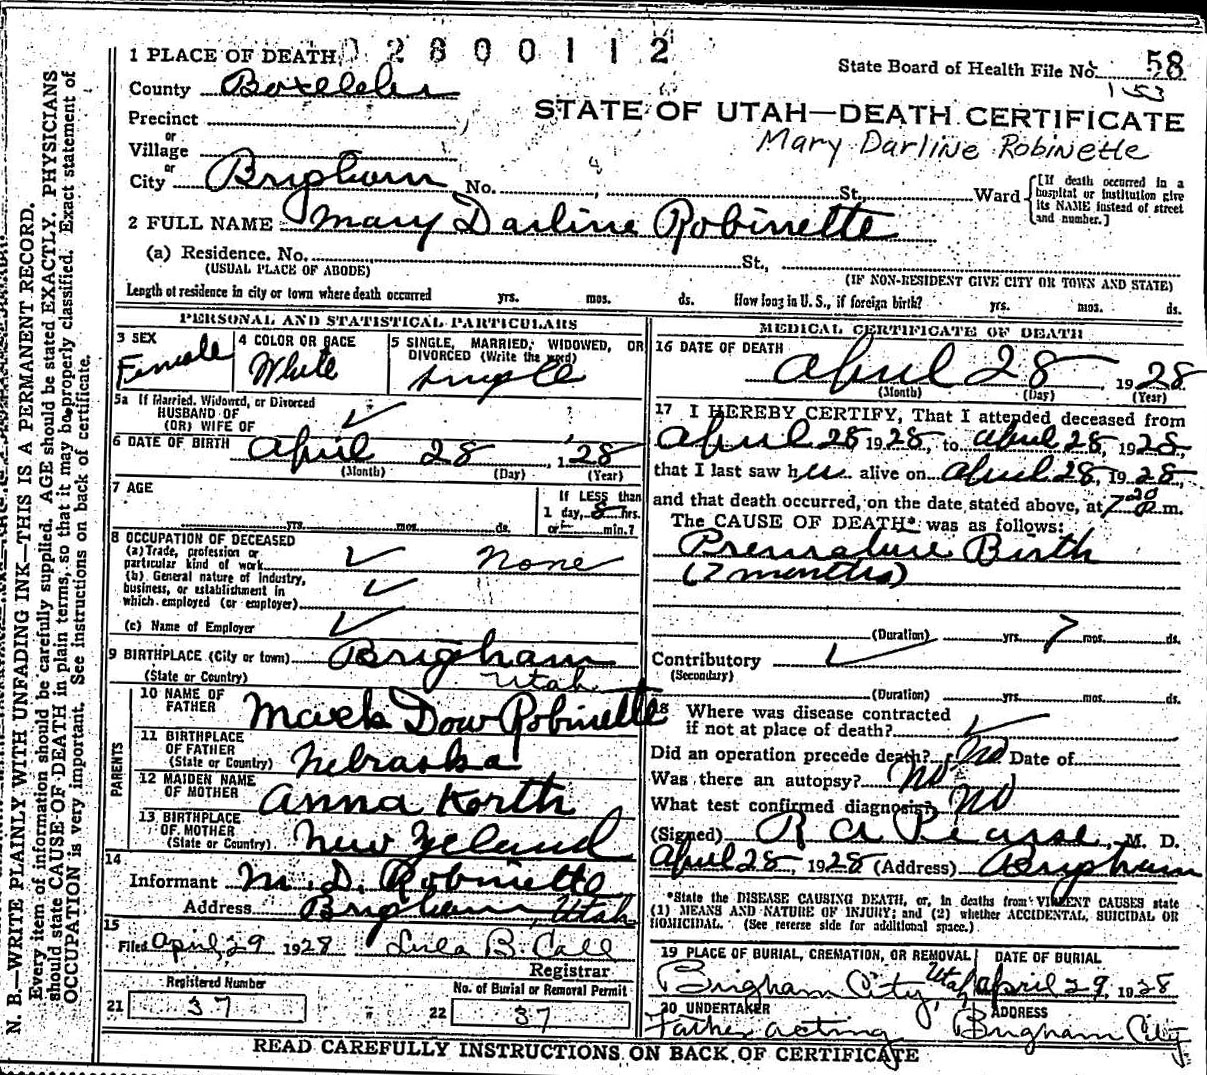 N. B.—WRITE PLAINLY WITH UNFADING INK—THIS IS A PERMANENT RECORD.
Every item of information should be carefully supplied. AGE should be stated EXACTLY. PHYSICIANS
should state CAUSE OF DEATH in plain terms, so that it may be properly classified. Exact statement of
OCCUPATION is very important. See instructions on back of certificate.
1 PLACE OF DEATH 0 2 8 0 0 1 1 2
State Board of Health File No. 58
153
County
STATE OF UTAH—DEATH CERTIFICATE
Mary Darline Robinette
Precinct
or
Village
or
City Brigham No. St. Ward
[If death occurred in a hospital or institution give its NAME instead of street and number.]
2 FULL NAME Mary Darline Robinette
(a) Residence. No. St.,
(USUAL PLACE OF ABODE) (IF NON-RESIDENT GIVE CITY OR TOWN AND STATE)
Length of residence in city or town where death occurred yrs. mos. ds. How long in U. S., if foreign birth? yrs. mos. ds.
PERSONAL AND STATISTICAL PARTICULARS
3 SEX Female
4 COLOR OR RACE White
5 SINGLE, MARRIED, WIDOWED, OR
DIVORCED (Write the word) single
5a If Married, Widowed, or Divorced
HUSBAND OF
(OR) WIFE OF
6 DATE OF BIRTH April 28, 1928
(Month) (Day) (Year)
7 AGE
yrs. mos. ds.
If LESS than
1 day, 8 hrs.
or min.?
8 OCCUPATION OF DECEASED
(a) Trade, profession or
particular kind of work None
(b) General nature of industry,
business, or establishment in
which employed (or employer)
(c) Name of Employer
9 BIRTHPLACE (City or town) Brigham
(State or Country) Utah
PARENTS
10 NAME OF
FATHER Mack Dow Robinette
11 BIRTHPLACE
OF FATHER
(State or Country) Nebraska
12 MAIDEN NAME
OF MOTHER Anna Korth
13 BIRTHPLACE
OF MOTHER
(State or Country) New Zeland
14
Informant M. D. Robinette
Address Brigham, Utah
15
Filed April, 29 1928 Lula B. Call
Registrar
Registered Number
21 37
No. of Burial or Removal Permit
22 37
MEDICAL CERTIFICATE OF DEATH
16 DATE OF DEATH
April 28, 1928
(Month) (Day) (Year)
17 I HEREBY CERTIFY, That I attended deceased from
April 28 1928, to April 28, 1928,
that I last saw her alive on April 28, 1928,
and that death occurred, on the date stated above, at 7 20 P. m.
The CAUSE OF DEATH* was as follows:
Premature Birth
(7 months)
(Duration) yrs. 7 mos. ds.
Contributory
(Secondary)
(Duration) yrs. mos. ds.
18 Where was disease contracted
if not at place of death?
Did an operation precede death? No Date of
Was there an autopsy? No
What test confirmed diagnosis? No
(Signed) R A Pearse, M. D.
April 28, 1928 (Address) Brigham
*State the DISEASE CAUSING DEATH, or, in deaths from VIOLENT CAUSES state
(1) MEANS AND NATURE OF INJURY; and (2) whether ACCIDENTAL, SUICIDAL OR
HOMICIDAL. (See reverse side for additional space.)
19 PLACE OF BURIAL, CREMATION, OR REMOVAL DATE OF BURIAL
Brigham City, Utah April 29, 1928
20 UNDERTAKER ADDRESS
Father acting Brigham City
READ CAREFULLY INSTRUCTIONS ON BACK OF CERTIFICATE